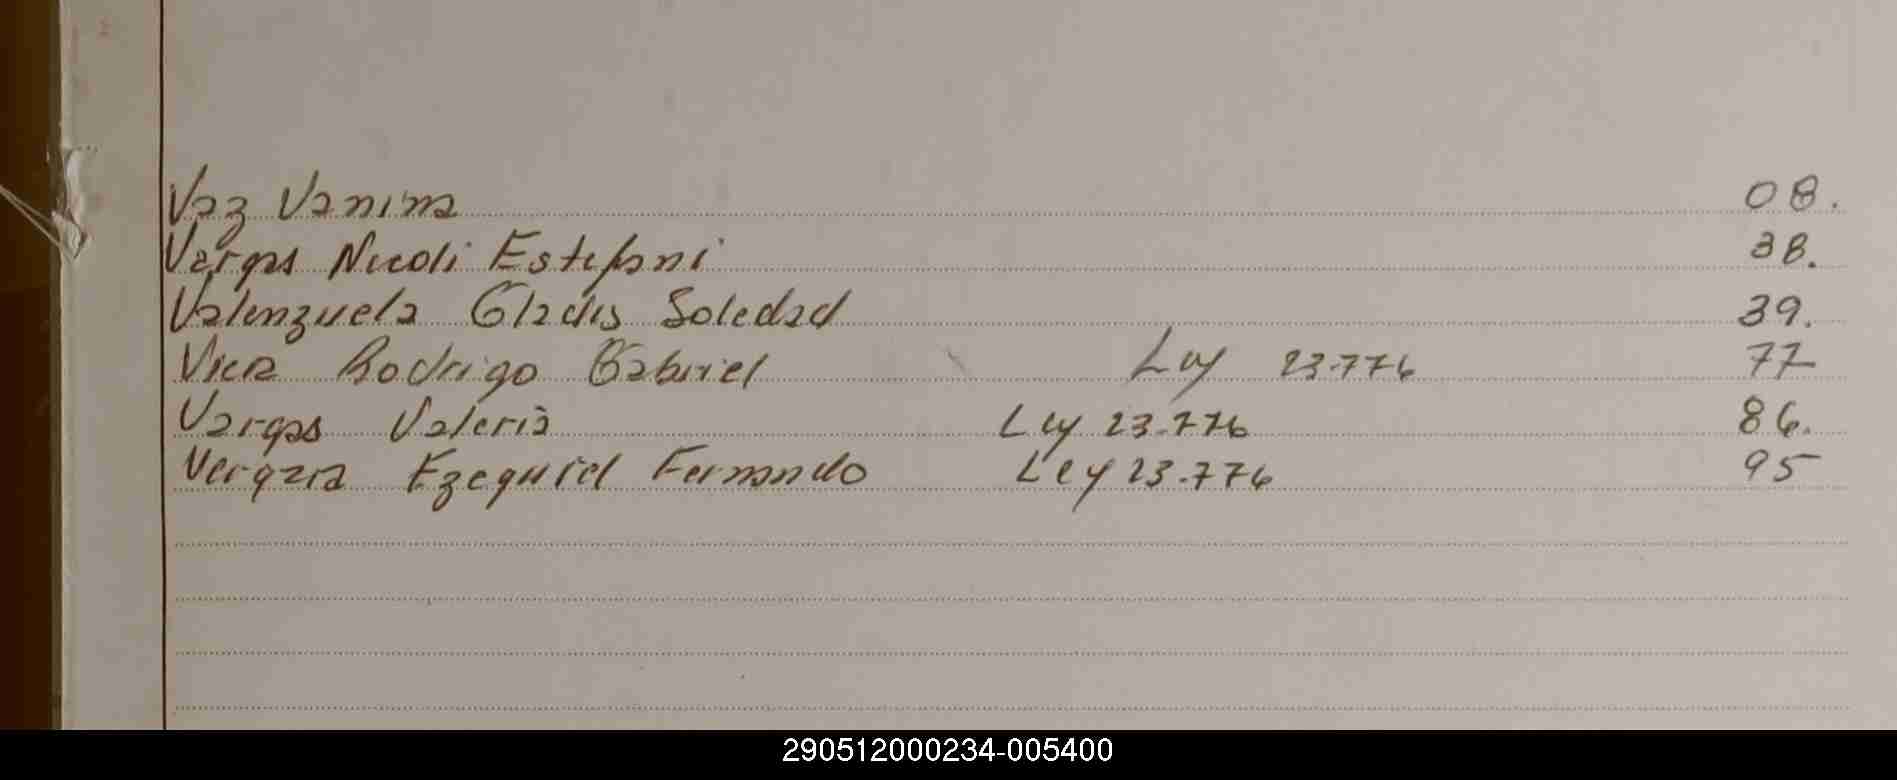 Vaz Vanina 08.
Vargas Nicoli Estefani 38.
Valenzuela Gladis Soledad 39.
Viera Rodrigo Gabriel Ley 23.776 77
Vargas Valeria Ley 23.776 86.
Vergara Ezequiel Fernando Ley 23.776 95
290512000234-005400